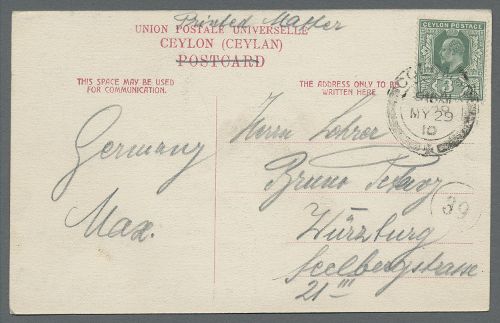 Printed Matter
UNION POSTALE UNIVERSELLE
CEYLON (CEYLAN)
POSTCARD
THIS SPACE MAY BE USED
FOR COMMUNICATION.
THE ADDRESS ONLY TO BE
WRITTEN HERE
CEYLON POSTAGE
3
MY 29
10
39
Germany
Max.
Herrn Lehrer
Bruno
Würzburg
Seelbergstrasse
21 III